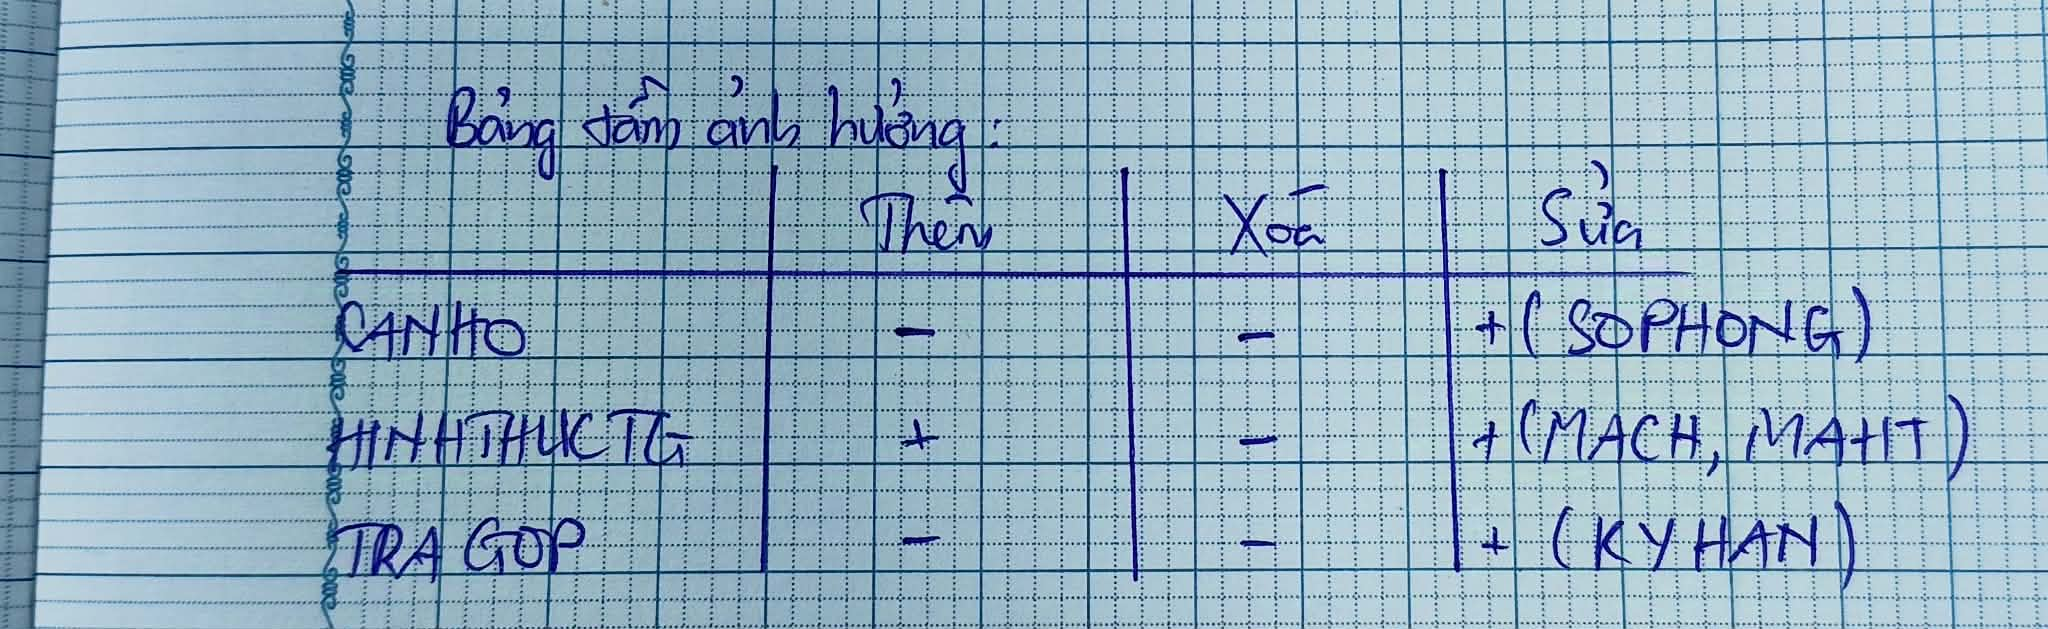 Bảng tầm ảnh hưởng:
Thêm Xoá Sửa
CANHO - - + (SOPHONG)
HINHTHUCTG + - + (MACH, MAHT)
TRAGOP - - + (KYHAN)